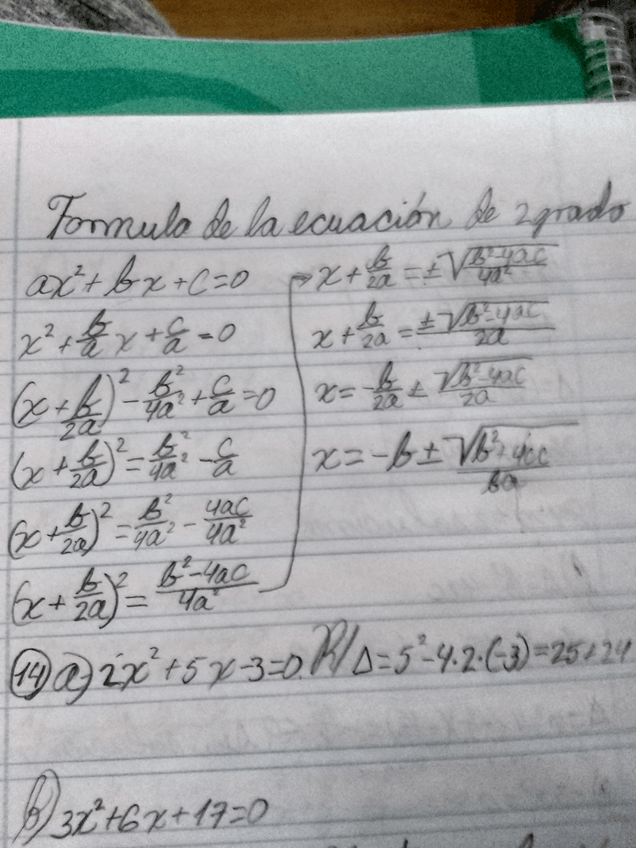 Formula de la ecuación de 2 grado
ax² + bx + c = 0
x² + b/a x + c/a = 0
(x + b/2a)² - b²/4a² + c/a = 0
(x + b/2a)² = b²/4a² - c/a
(x + b/2a)² = b²/4a² - 4ac/4a²
(x + b/2a)² = b²-4ac/4a²
→ x + b/2a = ±√b²-4ac/4a²
x + b/2a = ±√b²-4ac/2a
x = -b/2a ± √b²-4ac/2a
x = -b ± √b²+4cc/ba
14) a) 2x² + 5x - 3 = 0. R/ Δ = 5² - 4·2·(-3) = 25 + 24
b) 3x² + 6x + 17 = 0